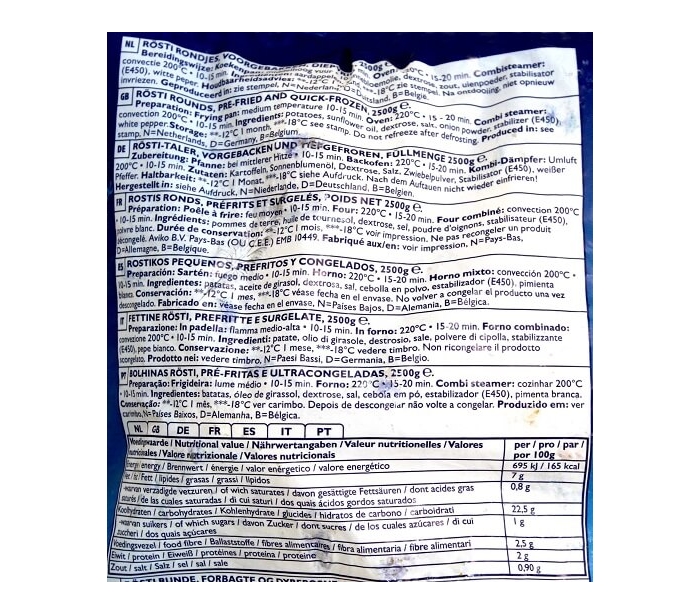 NL RÖSTI RONDJES, VOORGEBAKKEN, DIEP 2500g
Bereidingswijze: Koekenpan Oven: °C • 15-20 min. Combisteamer:
convectie 200°C • 10-15 min. aardappel, olie, dextrose, zout, uienpoeder, stabilisator
(E450), witte peper. Houdbaarheidsadvies: **-12°C -18°C zie stempel. Na ontdooiing niet opnieuw
invriezen. Geproduceerd in: zie stempel, N=Nederland, D=Duitsland, B=België.
GB RÖSTI ROUNDS, PRE-FRIED AND QUICK-FROZEN, 2500g e.
Preparation: Frying pan: medium temperature 10-15 min. Oven: 220°C • 15 - 20 min. Combi steamer:
convection 200°C • 10-15 min. Ingredients: potatoes, sunflower oil, dextrose, salt, onion powder, stabilizer (E450),
white pepper. Storage: **-12°C 1 month, ***-18°C see stamp. Do not refreeze after defrosting. Produced in: see
stamp, N=Netherlands, D=Germany, B=Belgium.
DE RÖSTI-TALER, VORGEBACKEN UND TIEFGEFROREN, FÜLLMENGE 2500g e.
Zubereitung: Pfanne: bei mittlerer Hitze • 10-15 min. Backofen: 220°C • 15-20 min. Kombi-Dämpfer: Umluft
200°C • 10-15 min. Zutaten: Kartoffeln, Sonnenblumenöl, Dextrose, Salz, Zwiebelpulver, Stabilisator (E450), weißer
Pfeffer. Haltbarkeit: **-12°C 1 Monat, ***-18°C siehe Aufdruck. Nach dem Auftauen nicht wieder einfrieren!
Hergestellt in: siehe Aufdruck, N=Niederlande, D=Deutschland, B=Belgien.
FR RÖSTIS RONDS, PRÉFRITS ET SURGELÉS, POIDS NET 2500g e.
Préparation: Poêle à frire: feu moyen • 10-15 min. Four: 220°C • 15-20 min. Four combiné: convection 200°C
• 10-15 min. Ingrédients: pommes de terre, huile de tournesol, dextrose, sel, poudre d'oignons, stabilisateur (E450),
poivre blanc. Durée de conservation: **-12°C 1 mois, ***-18°C voir impression. Ne pas recongeler un produit
décongelé. Aviko B.V. Pays-Bas (OU C.E.E.) EMB 10449. Fabriqué aux/en: voir impression, N=Pays-Bas,
D=Allemagne, B=Belgique.
ES ROSTIKOS PEQUENOS, PREFRITOS Y CONGELADOS, 2500g e.
Preparación: Sartén: fuego medio • 10-15 min. Horno: 220°C • 15-20 min. Horno mixto: convección 200°C •
10-15 min. Ingredientes: patatas, aceite de girasol, dextrosa, sal, cebolla en polvo, estabilizador (E450), pimienta
blanca. Conservación: **-12°C 1 mes, ***-18°C véase fecha en el envase. No volver a congelar el producto una vez
descongelado. Fabricado en: véase fecha en el envase, N=Países Bajos, D=Alemania, B=Bélgica.
IT FETTINE RÖSTI, PREFRITTE E SURGELATE, 2500g e.
Preparazione: In padella: fiamma medio-alta • 10-15 min. In forno: 220°C • 15-20 min. Forno combinado:
convezione 200°C • 10-15 min. Ingredienti: patate, olio di girasole, destrosio, sale, polvere di cipolla, stabilizzante
(E450), pepe bianco. Conservazione: **-12°C 1 mese, ***-18°C vedere timbro. Non ricongelare il prodotto
scongelato. Prodotto nel: vedere timbro, N=Paesi Bassi, D=Germania, B=Belgio.
PT BOLHINAS RÖSTI, PRÉ-FRITAS E ULTRACONGELADAS, 2500g e.
Preparação: Frigideira: lume médio • 10-15 min. Forno: 220°C • 15-20 min. Combi steamer: cozinhar 200°C
• 10-15 min. Ingredientes: batatas, óleo de girassol, dextrose, sal, cebola em pó, estabilizador (E450), pimenta branca.
Conservação: **-12°C 1 mês, ***-18°C ver carimbo. Depois de descongelar não volte a congelar. Produzido em: ver
carimbo, N=Países Baixos, D=Alemanha, B=Bélgica.
NL GB DE FR ES IT PT
Voedingswaarde / Nutritional value / Nährwertangaben / Valeur nutritionelles / Valores
nutricionales / Valore nutrizionale / Valores nutricionais per / pro / par / por 100g
Energie / energy / Brennwert / énergie / valor enérgetico / valore energético 695 kJ / 165 kcal
Vet / fat / Fett / lipides / grasas / grassi / lípidos 7 g
-waarvan verzadigde vetzuren / of wich saturates / davon gesättigte Fettsäuren / dont acides gras 0,8 g
saturés / de las cuales saturadas / di cui saturi / dos quais ácidos gordos saturados
Koolhydraten / carbohydrates / Kohlenhydrate / glucides / hidratos de carbono / carboidrati 22,5 g
-waarvan suikers / of which sugars / davon Zucker / dont sucres / de los cuales azúcares / di cui 1 g
zuccheri / dos quais açúcares
Voedingsvezel / food fibre / Ballaststoffe / fibres alimentaires / fibra alimentaria / fibre alimentari 2,5 g
Eiwit / protein / Eiweiß / protéines / proteina / proteine 2 g
Zout / salt / Salz / sel / sal / sale 0,90 g